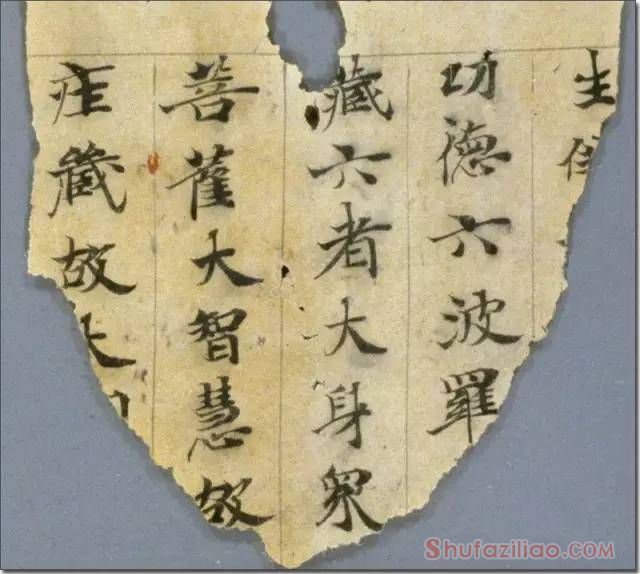 生
功德六波羅
藏六者大身眾
菩薩大智慧故
莊嚴故
Shufaziliao.com